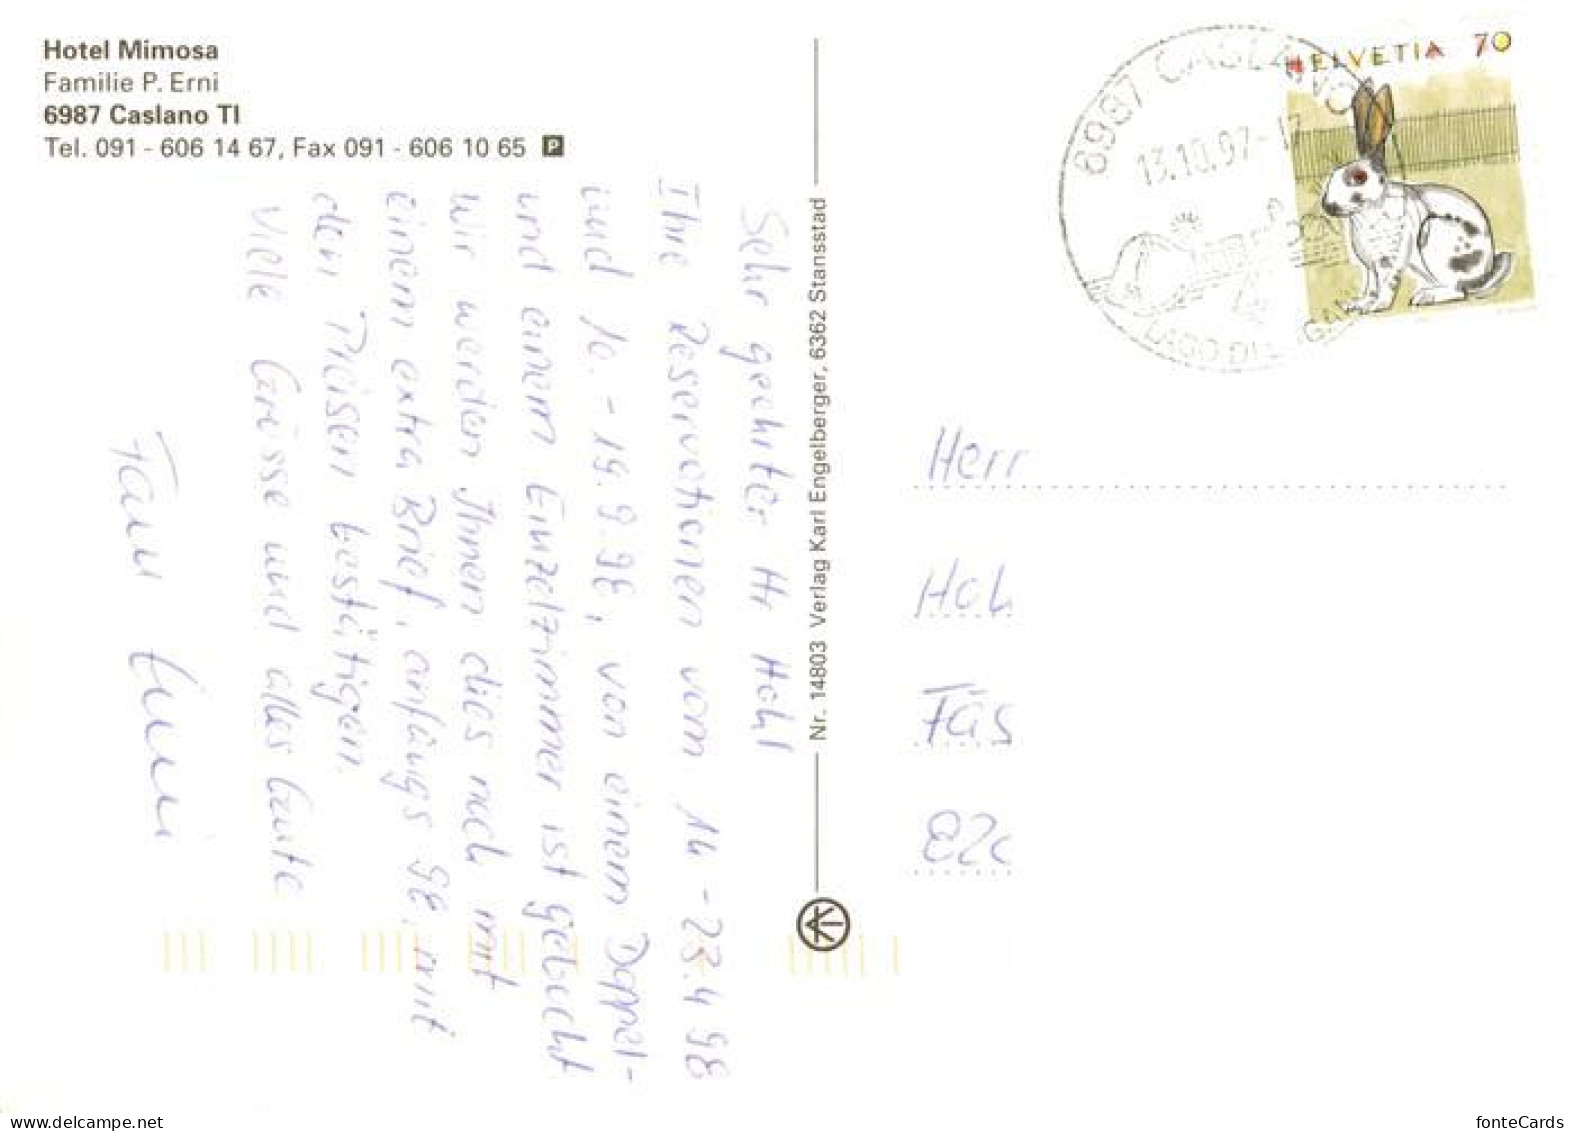 Hotel Mimosa
Familie P. Erni
6987 Caslano TI
Tel. 091 - 606 14 67, Fax 091 - 606 10 65 P
Sehr geehrter Hr Hohl
Ihre Reservationen vom 14 - 23.4 98
und 10. - 19.9.98, von einem Doppel-
und einem Einzelzimmer ist gebucht
Wir werden Ihnen dies noch mit
einem extra Brief, anfangs 98, mit
den Preisen bestätigen.
Viele Grüsse und alles Gute
Fam
Nr. 14803 Verlag Karl Engelberger, 6362 Stansstad
6987 CASLANO
13.10.97-17
LAGO DI LUGANO
HELVETIA 70
Herr
Hoh
Fäs
820
www.delcampe.net
fonteCards